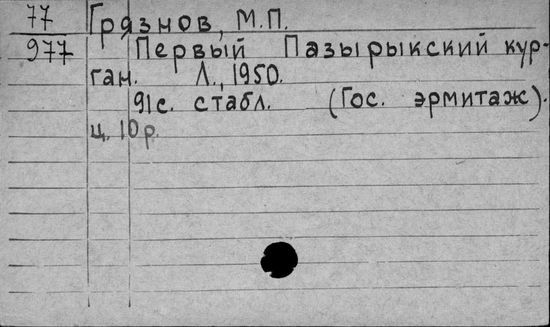 77 Грязнов, М.П.
977 Первый Пазырыкский кур-
ган. Л., 1950.
91с. стабл. (Гос. эрмитаж).
ц. 10р.